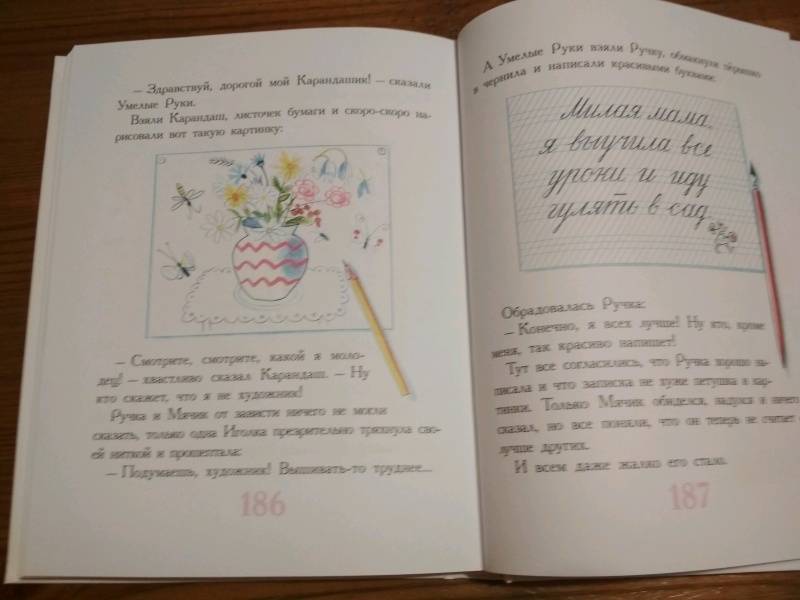 — Здравствуй, дорогой мой Карандашик! — сказали
Умелые Руки.
Взяли Карандаш, листочек бумаги и скоро-скоро на-
рисовали вот такую картинку:
— Смотрите, смотрите, какой я моло-
дец! — хвастливо сказал Карандаш. — Ну
кто скажет, что я не художник!
Ручка и Мячик от зависти ничего не могли
сказать, только одна Иголка презрительно тряхнула сво-
ей ниткой и прошептала:
— Подумаешь, художник! Вышивать-то труднее...
186
А Умелые Руки взяли Ручку, обмакнули пёрышко
в чернила и написали красивыми буквами:
Милая мама,
я выучила все
уроки и иду
гулять в сад.
Обрадовалась Ручка:
— Конечно, я всех лучше! Ну кто, кроме
меня, так красиво напишет!
Тут все согласились, что Ручка хорошо на-
писала и что записка не хуже петушка и кар-
тинки. Только Мячик обиделся, надулся и ничего
сказал, но все поняли, что он теперь не считает
лучше других.
И всем даже жалко его стало.
187